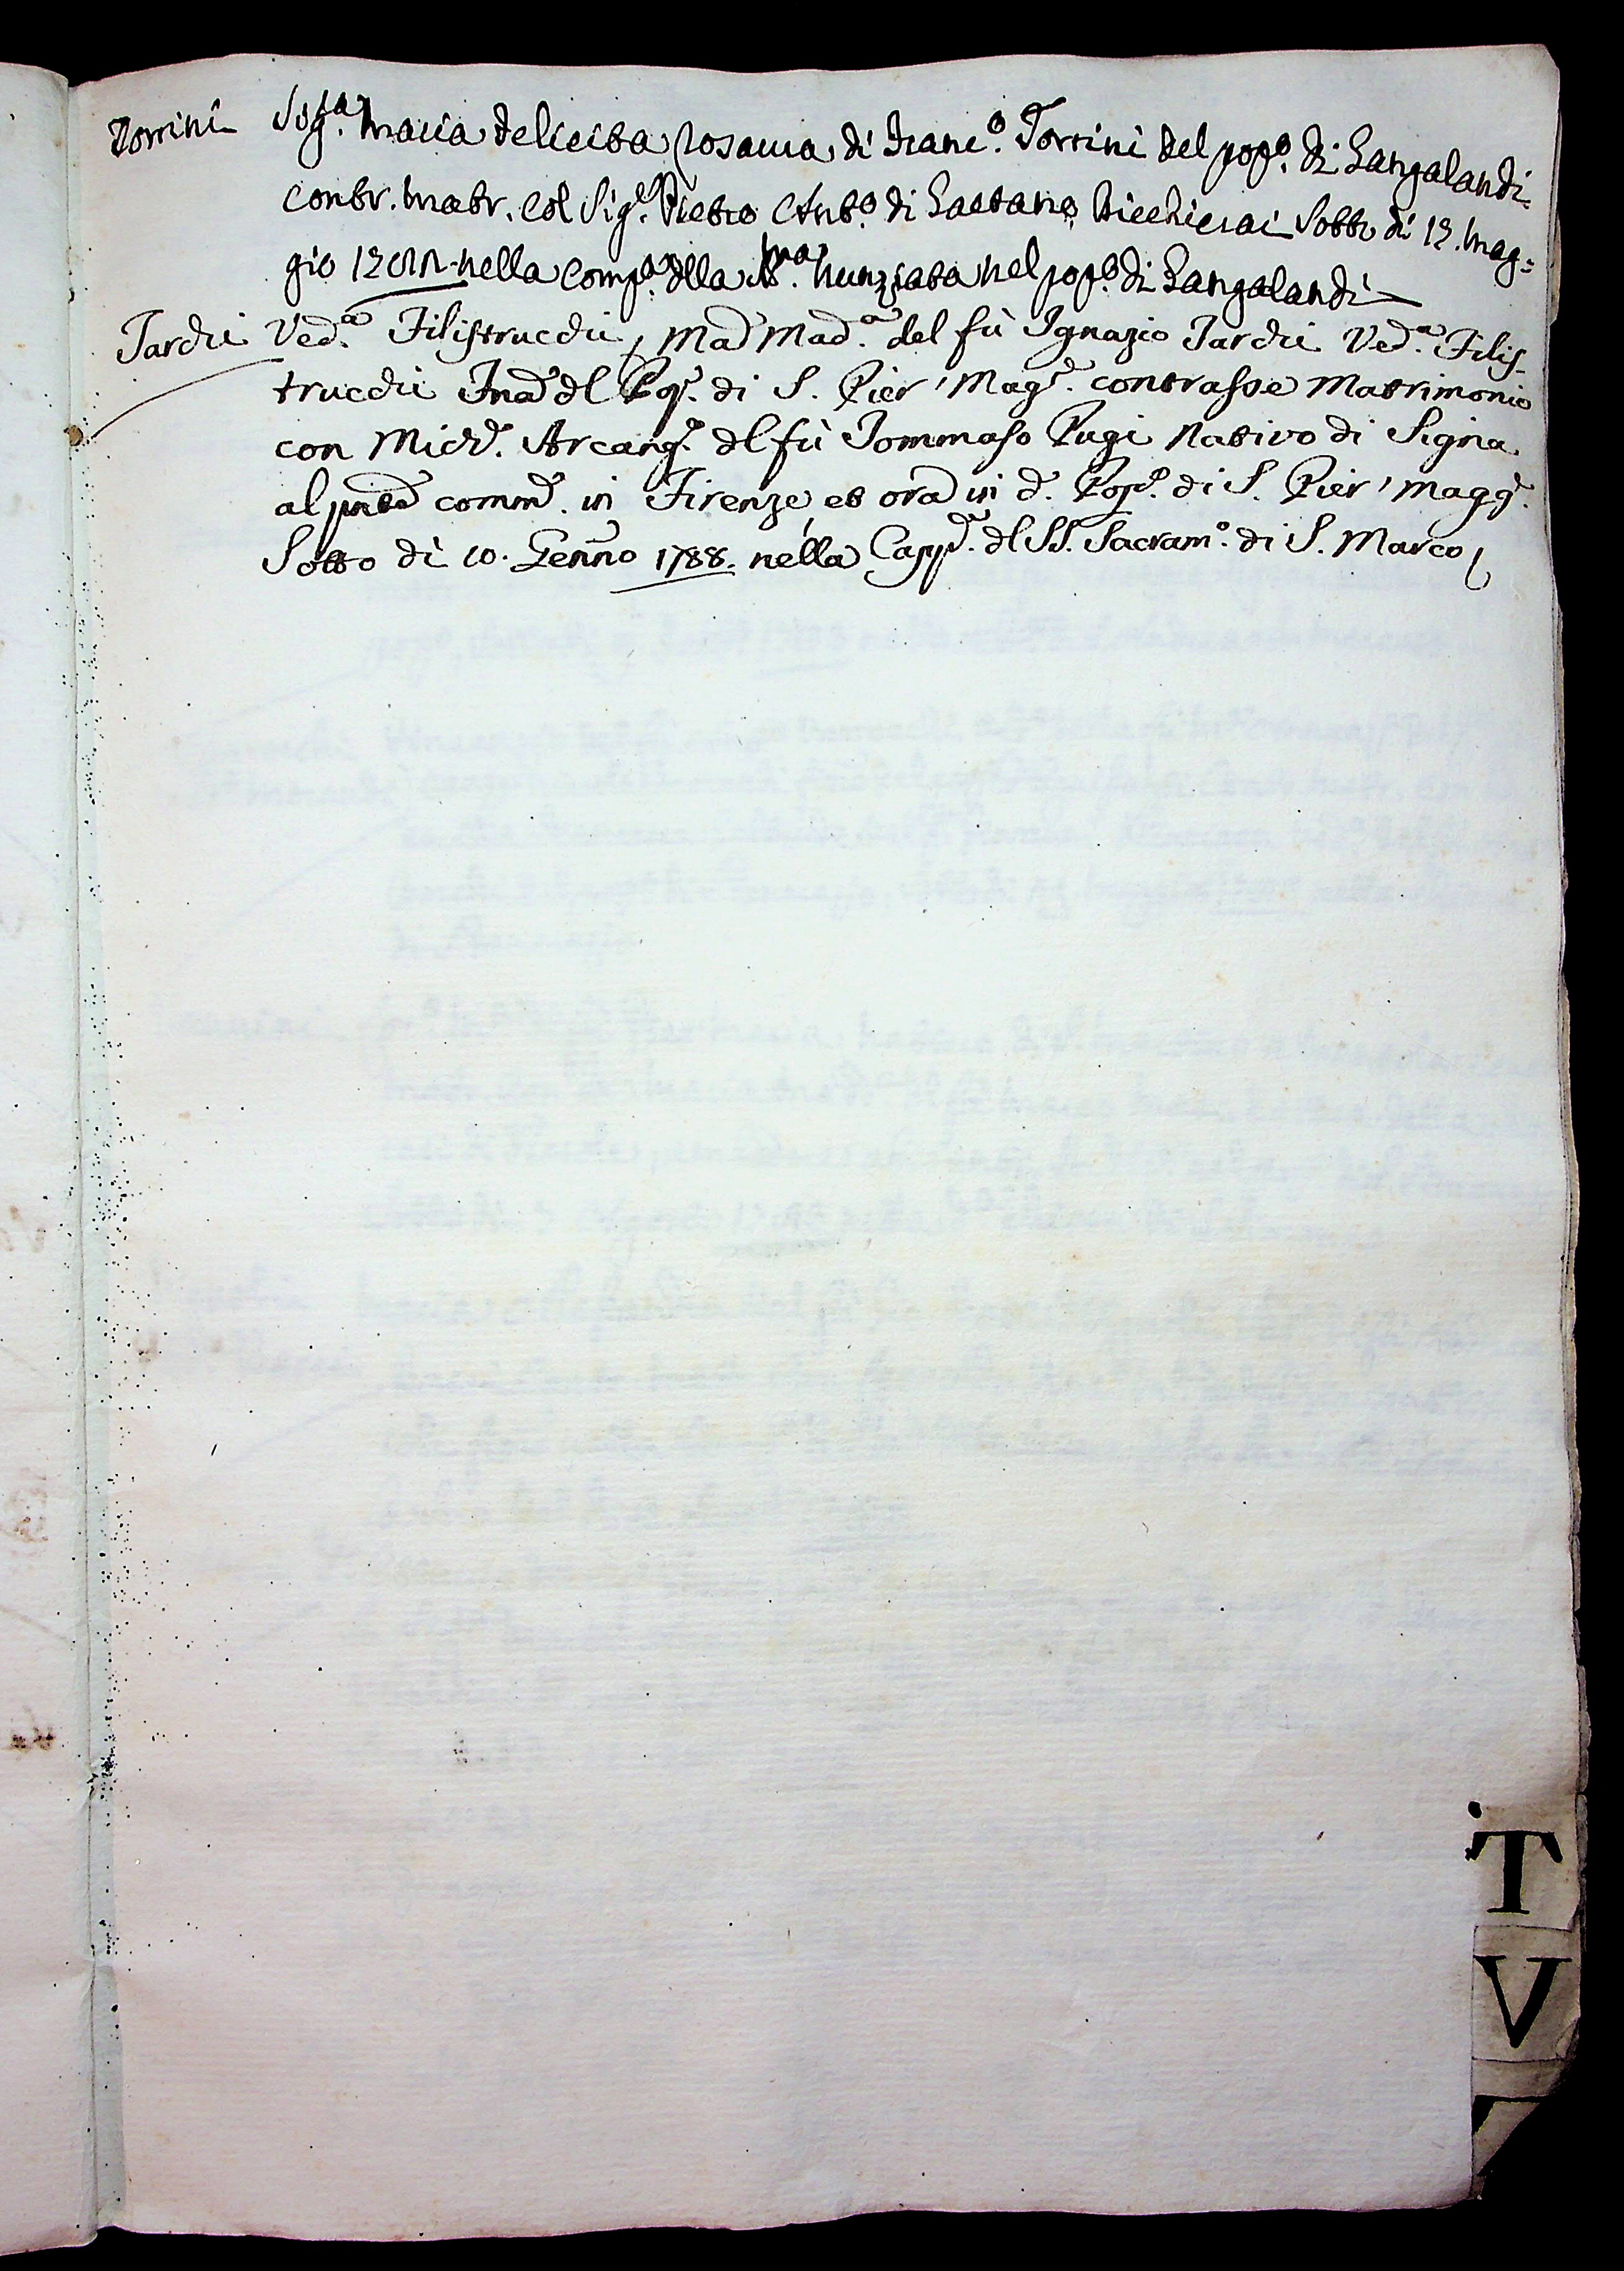 Torrini Sig.ra Maria Felicita Rosanna di Franc.o Torrini del pop.o di Gangalandi
contr. matr. col Sig.e Pietro Ant.o di Gaetano Bicchierai Sotto di 12. Mag=
gio 1277 nella Comp.a della SS.ma Nunziata nel pop.o di Gangalandi
Tardii Ved.a Filistrucchi, Mad Mad.a del fù Ignazio Tardii Ved.a Filis-
trucchi dl Pop.o di S. Pier' Mag.e contrasse Matrimonio
con Mich.e Arcang.o dl fù Tommaso Pugi Nativo di Signa
al comm.e in Firenze, et ora in d.o Pop.o di S. Pier' Magg.e
Sotto dì 10. Genno 1788. nella Capp.a dl SS. Sacram.o di S. Marco
T
V